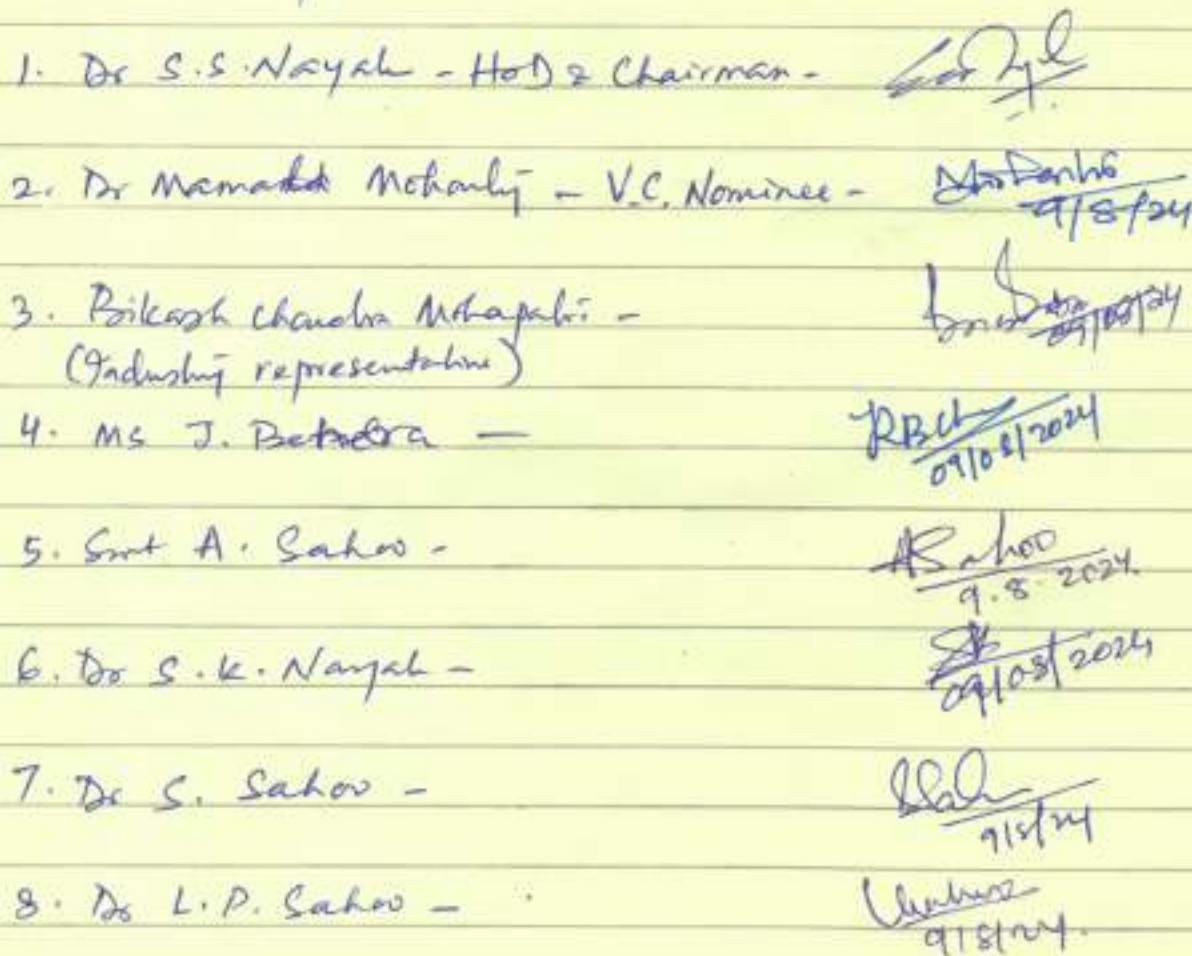 1. Dr S.S. Nayak - HoD & Chairman -
2. Dr Mamata Mohanty - V.C. Nominee -
9/8/24
3. Bikash Chandra Mohapatra -
09/08/24
(Industry representative)
4. Ms J. Behera -
09/08/2024
5. Smt A. Sahoo - ASahoo
9.8.2024.
6. Dr S.K. Nayak -
09/08/2024
7. Dr S. Sahoo -
9/8/24
8. Dr L.P. Sahoo -
9/8/24.